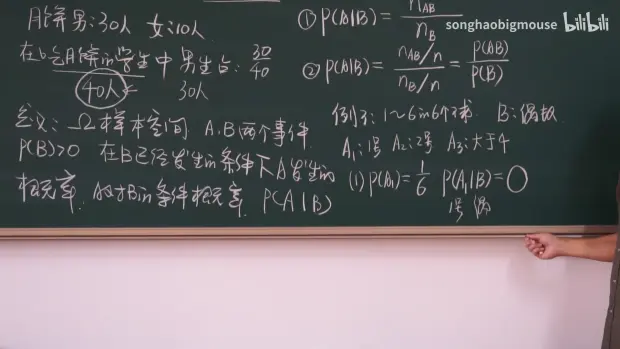 月饼男:30人 女:10人
在吃月饼的学生中男生占:30/40
40人 30人
定义:Ω样本空间 A.B两个事件
P(B)>0 在B已经发生的条件下A发生的
概率. A对B的条件概率. P(A|B)
① P(A|B)= n_AB/n_B
② P(A|B)= (n_AB/n)/(n_B/n) = P(AB)/P(B)
例3: 1~6的6个球. B:偶数
A₁:1号 A₂:2号 A₃:大于4
(1) P(A₁)=1/6 P(A₁|B)=0
1号 偶
songhaobigmouse bilibili